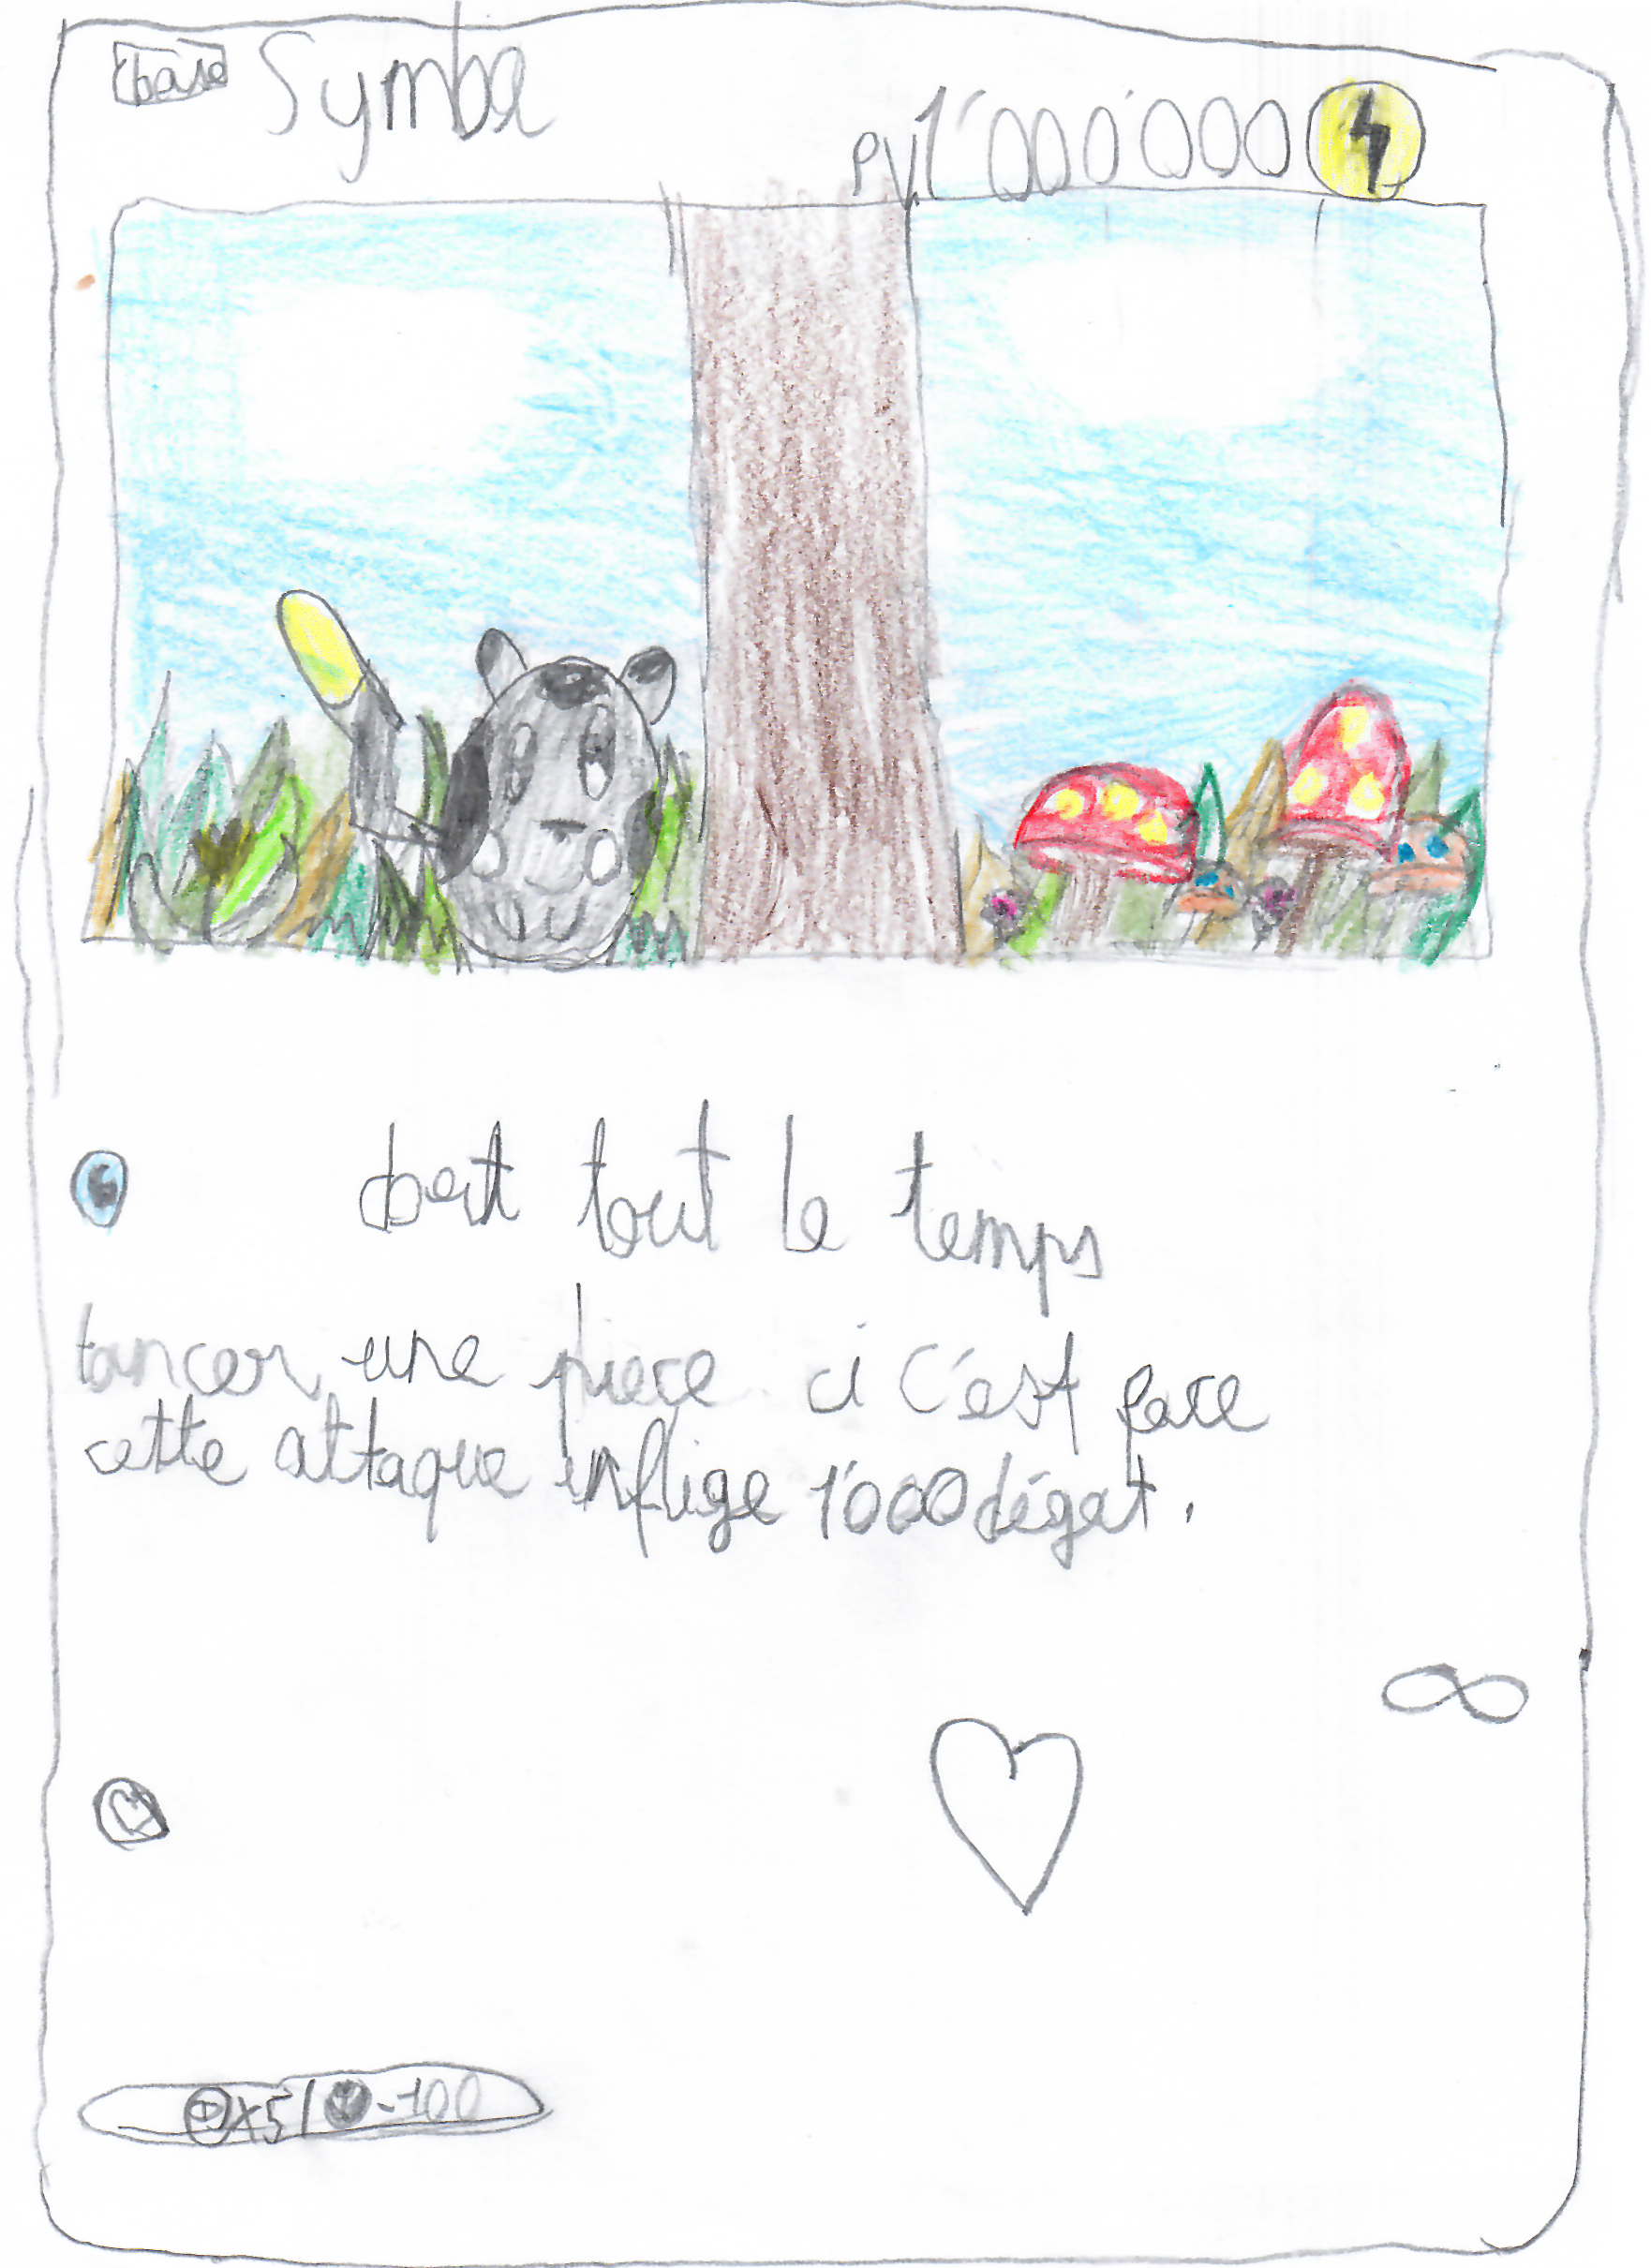 base Symba
PV 1'000'000
doit tout le temps
lancer une piece ci c'est face
cette attaque inflige 1'000 dégat.
∞
x5 / -100